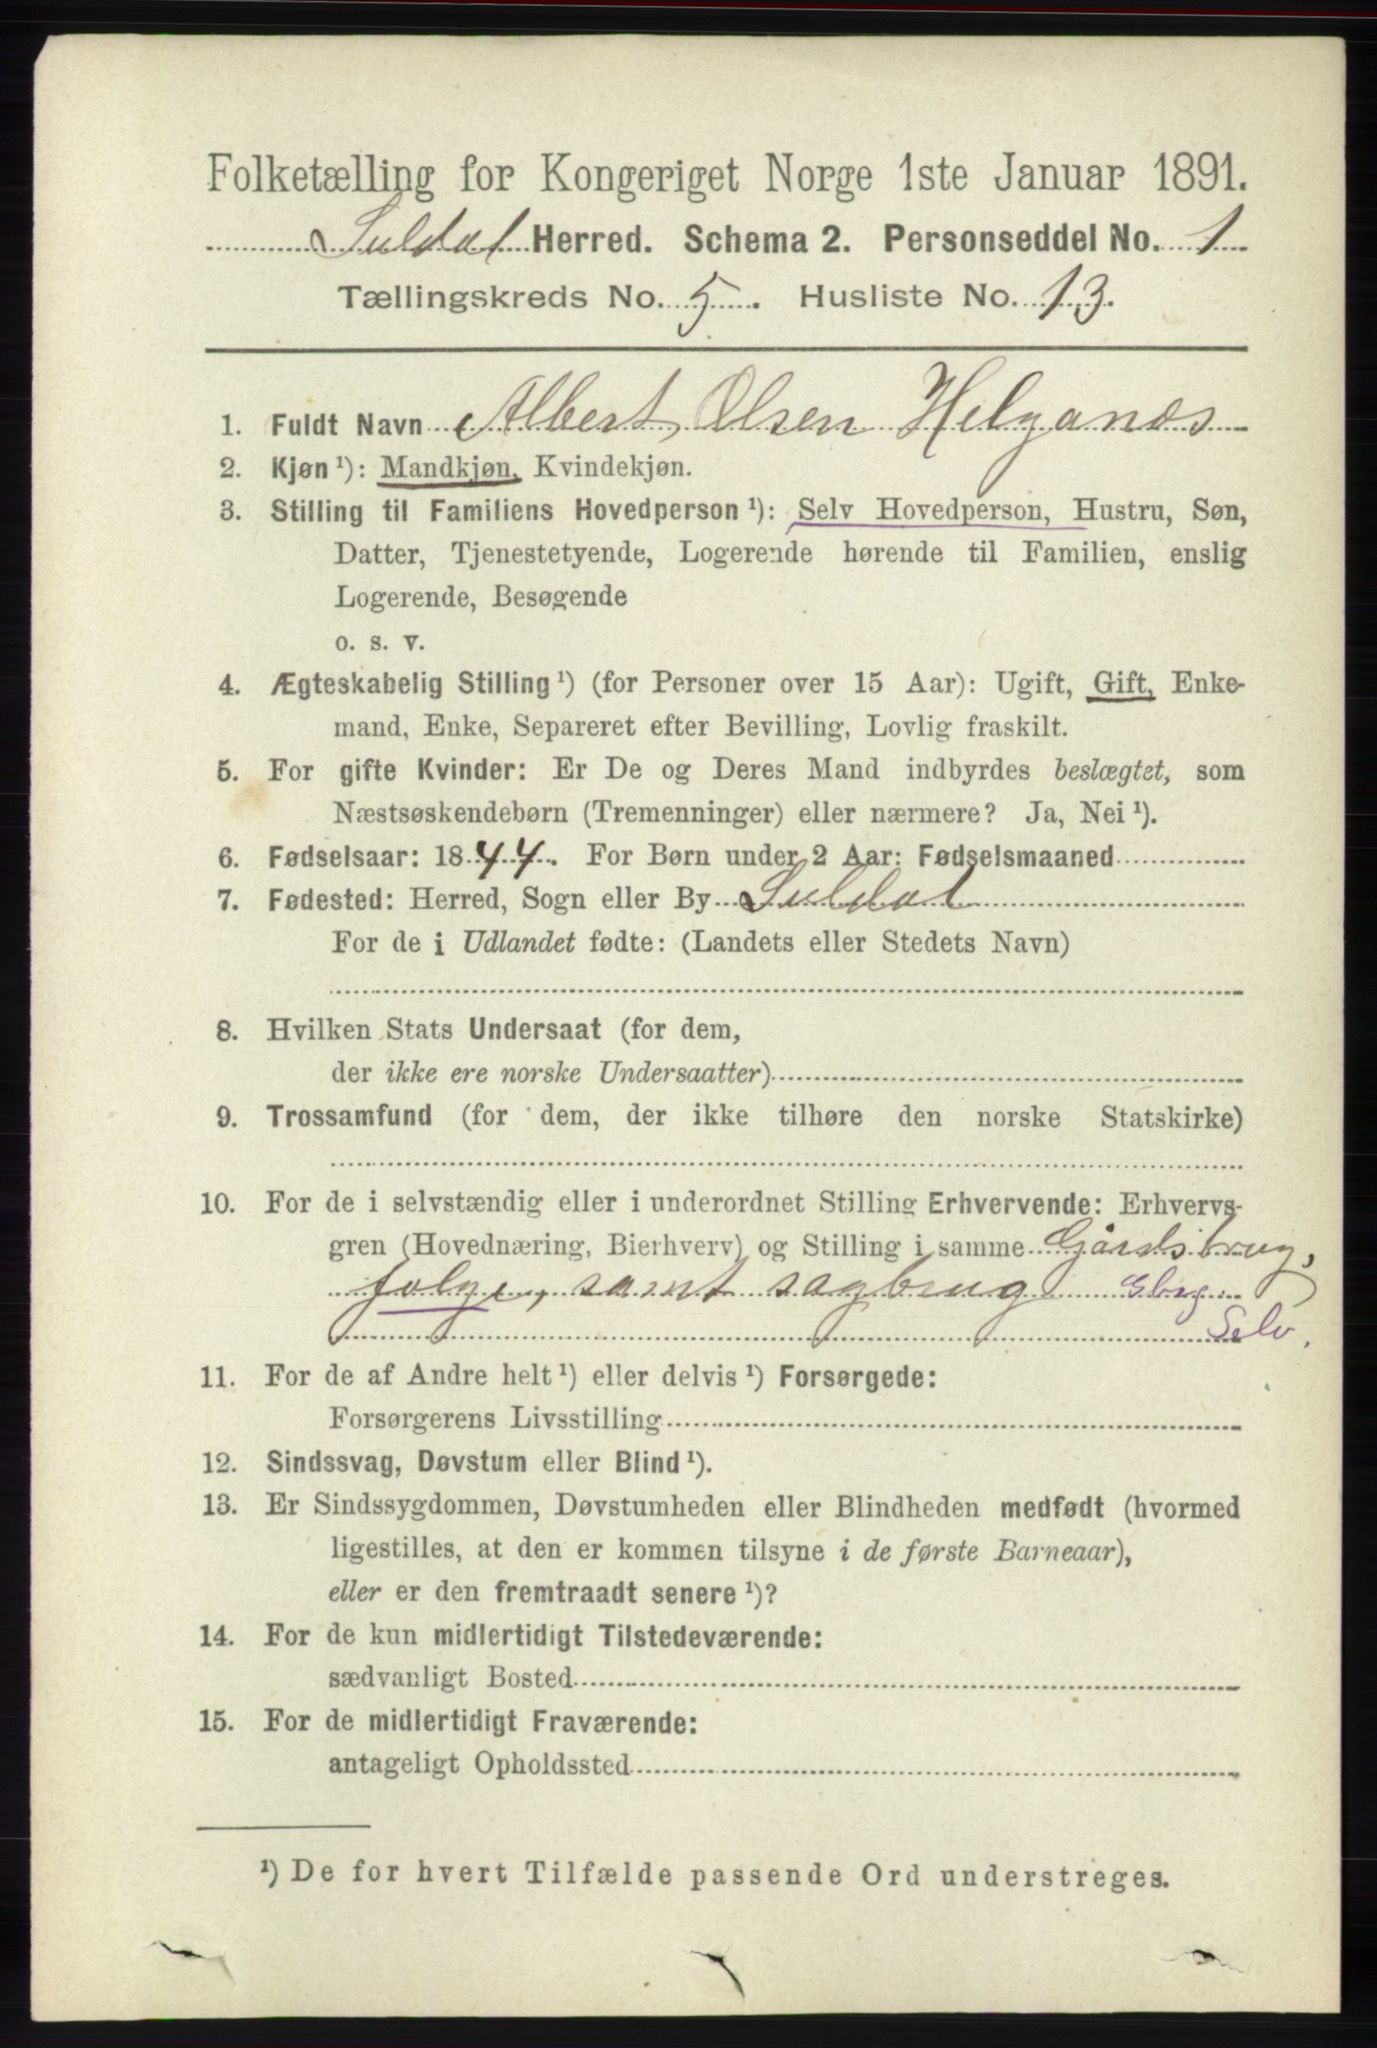 Folketælling for Kongeriget Norge 1ste Januar 1891.
Suldal Herred. Schema 2. Personseddel No. 1
Tællingskreds No. 5. Husliste No. 13.
1. Fuldt Navn Albert Olsen Helganæs
2. Kjøn ¹): Mandkjøn, Kvindekjøn.
3. Stilling til Familiens Hovedperson ¹): Selv Hovedperson, Hustru, Søn,
Datter, Tjenestetyende, Logerende hørende til Familien, enslig
Logerende, Besøgende
o. s. v.
4. Ægteskabelig Stilling ¹) (for Personer over 15 Aar): Ugift, Gift, Enke-
mand, Enke, Separeret efter Bevilling, Lovlig fraskilt.
5. For gifte Kvinder: Er De og Deres Mand indbyrdes beslægtet, som
Næstsøskendebørn (Tremenninger) eller nærmere? Ja, Nei ¹).
6. Fødselsaar: 1844. For Børn under 2 Aar: Fødselsmaaned
7. Fødested: Herred, Sogn eller By Suldal
For de i Udlandet fødte: (Landets eller Stedets Navn)
8. Hvilken Stats Undersaat (for dem,
der ikke ere norske Undersaatter)
9. Trossamfund (for dem, der ikke tilhøre den norske Statskirke)
10. For de i selvstændig eller i underordnet Stilling Erhvervende: Erhvervs-
gren (Hovednæring, Bierhverv) og Stilling i samme Gårdsbrug,
følge, samt sagbrug Gbrg.
Selv.
11. For de af Andre helt ¹) eller delvis ¹) Forsørgede:
Forsørgerens Livsstilling
12. Sindssvag, Døvstum eller Blind ¹).
13. Er Sindssygdommen, Døvstumheden eller Blindheden medfødt (hvormed
ligestilles, at den er kommen tilsyne i de første Barneaar),
eller er den fremtraadt senere ¹)?
14. For de kun midlertidigt Tilstedeværende:
sædvanligt Bosted
15. For de midlertidigt Fraværende:
antageligt Opholdssted
¹) De for hvert Tilfælde passende Ord understreges.